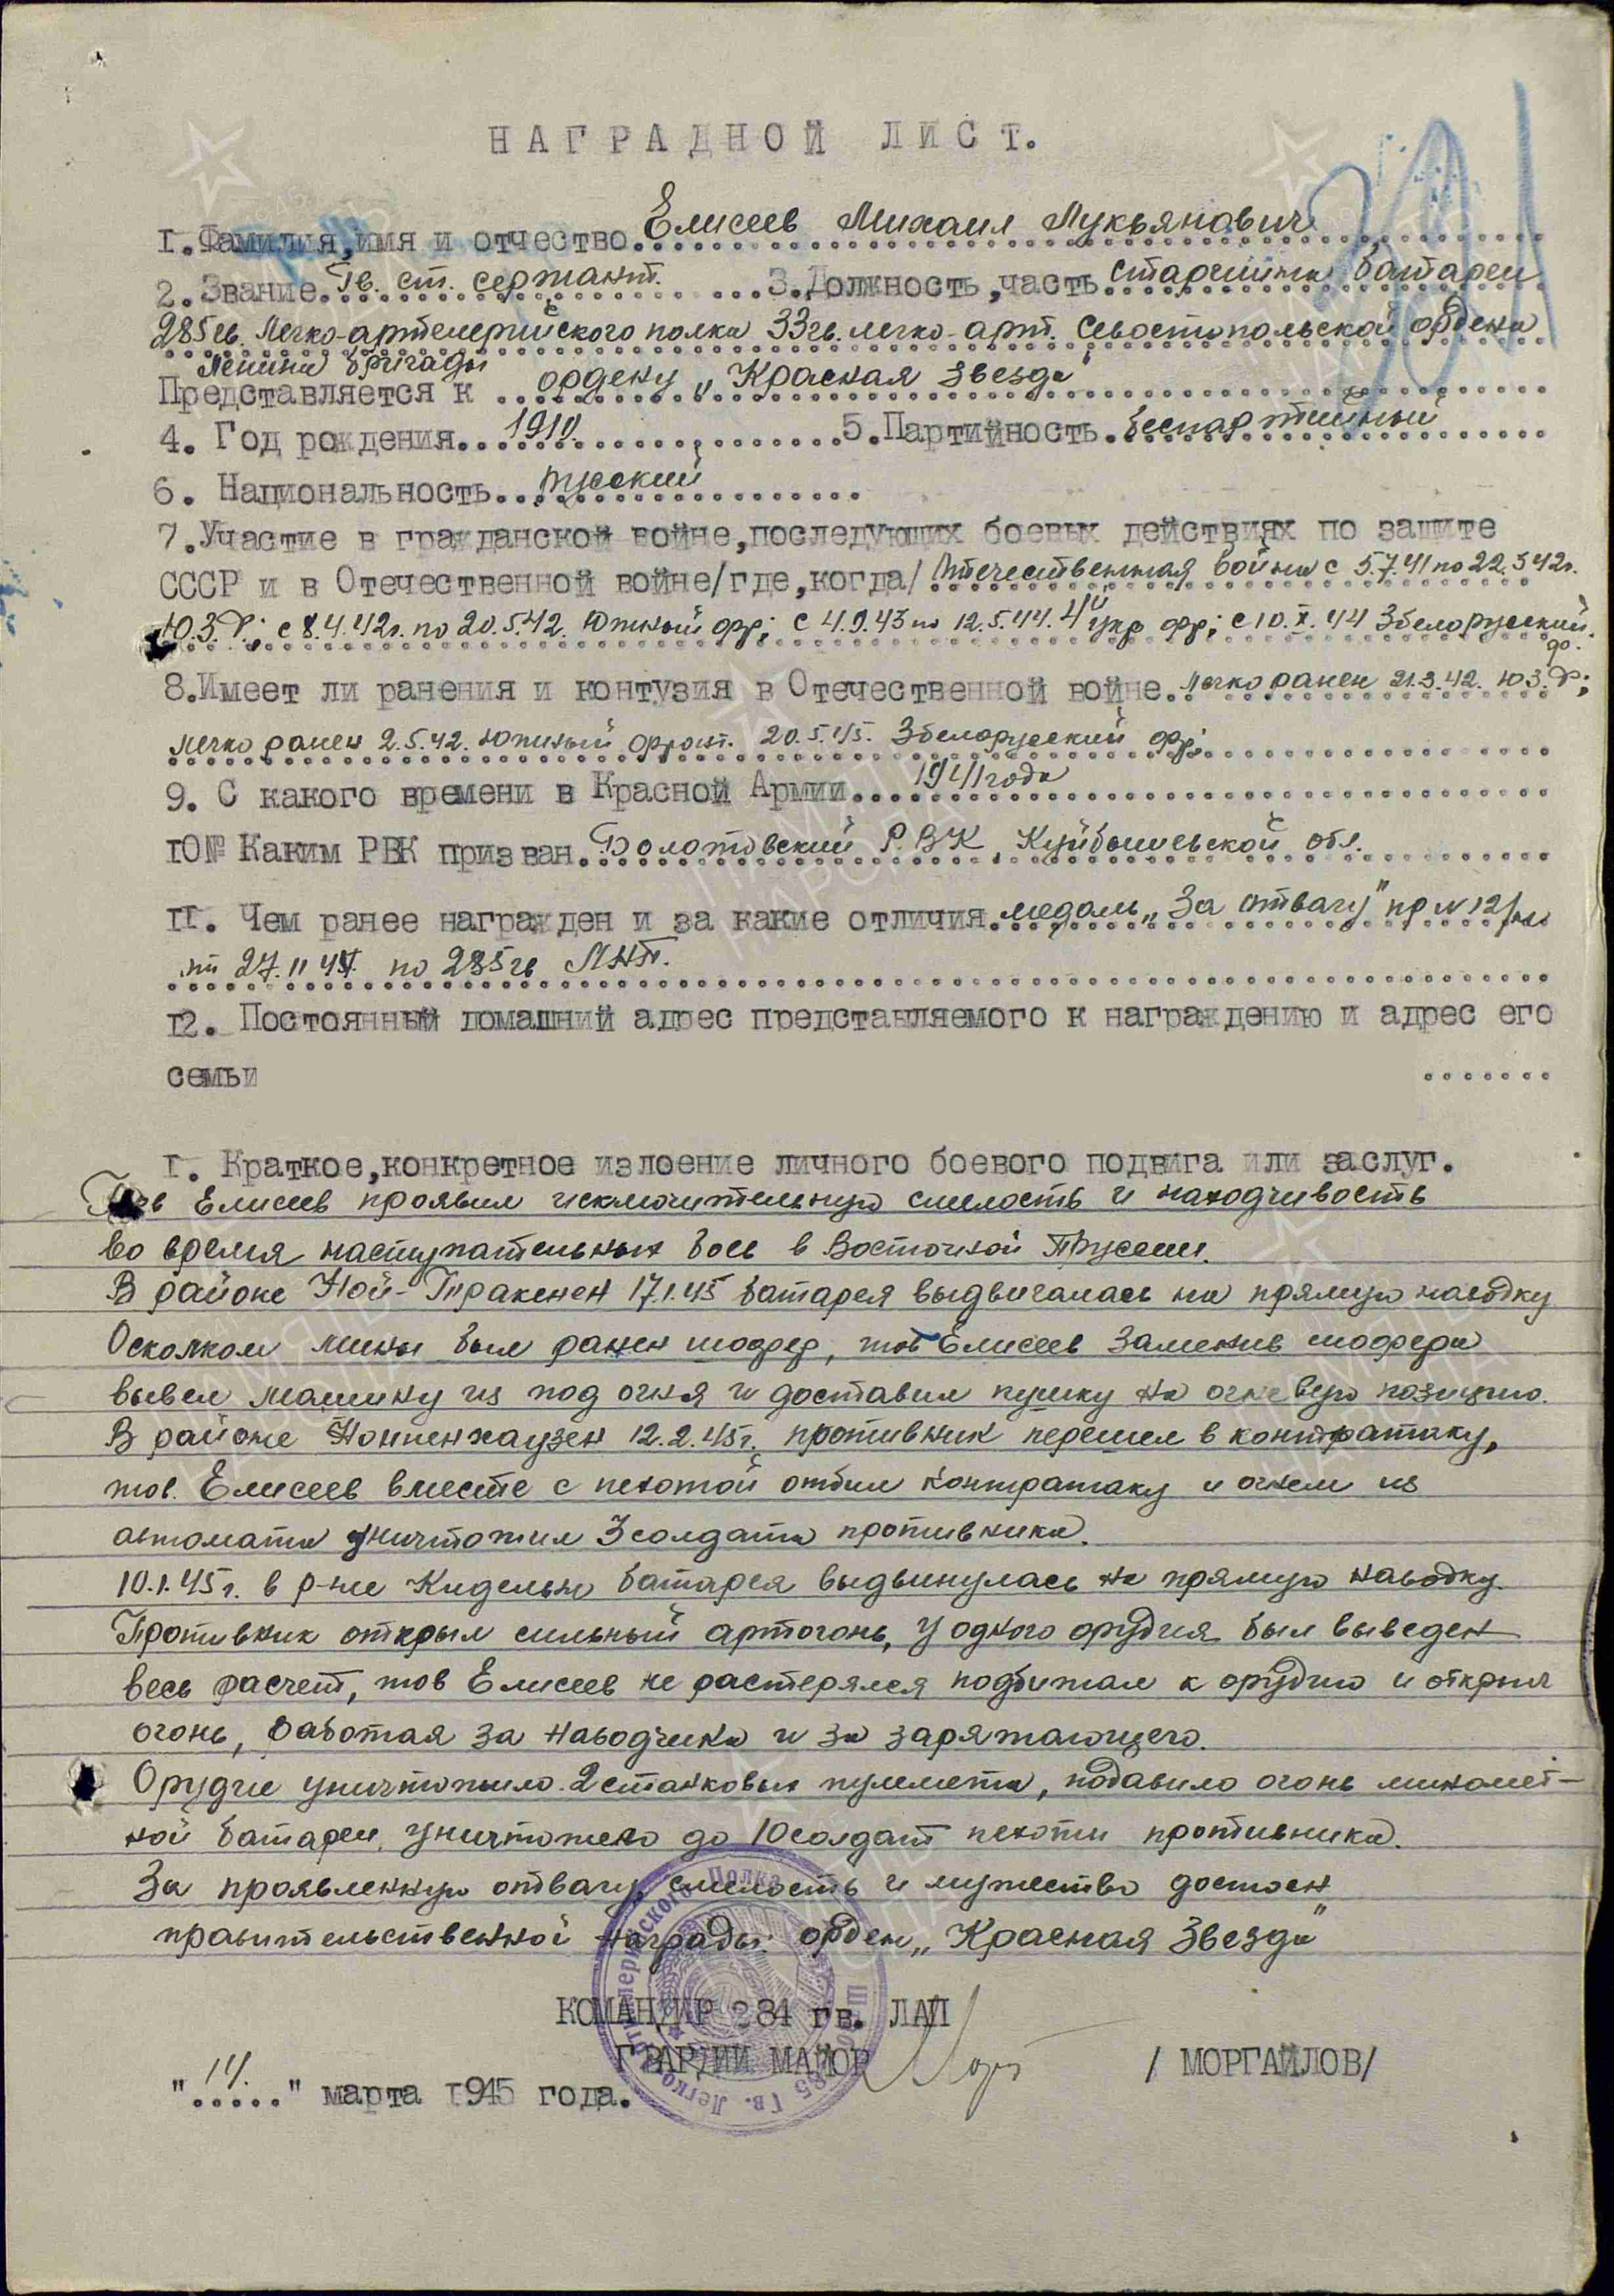 НАГРАДНОЙ ЛИСТ.
I.Фамилия,имя и отчество. Елисеев Михаил Лукьянович
2.Звание. Гв. ст. сержант. 3.Должность,часть. старшина батареи
285 гв. Легко-артелерийского полка 33 гв. легко-арт. Севостопольской ордена
Ленина бригады
Представляется к ордену „Красная звезда"
4. Год рождения. 1910 5.Партийность. беспартийный
6. Национальность. русский
7.Участие в гражданской войне,последующих боевых действиях по защите
СССР и в Отечественной войне/где,когда/ Отечественная война с 5.7.41 по 22.3 42г.
Ю.З.Ф.; с 8.4.42г. по 20.5.42. Южный фр; с 4.9.43 по 12.5.44. 4й укр фр; с 10.X.44 3 белорусский.
фр.
8.Имеет ли ранения и контузия в Отечественной войне. Легко ранен 21.3.42. Ю З.Ф;
легко ранен 2.5.42. Южный фронт. 20. 3 белорусский фр;
9. С какого времени в Красной Армии. 1941 года
IО№ Каким РВК призван. Р.ВК, Куйбышевской обл.
II. Чем ранее награжден и за какие отличия. медаль „За отвагу" пр N 12/
от 27.11 по 285 гв ЛАП.
I2. Постоянный домашний адрес представляемого к награждению и адрес его
семьи
I. Краткое,конкретное излоение личного боевого подвига или заслуг.
Елисеев проявил исключительную смелость и находчивость
во время наступательных боев в Восточной Пруссии.
В районе Ной-Тракенен 17.1.45 батарея выдвигалась на прямую наводку
Осколком мины был ранен шофер, тов Елисеев заменив шофера
вывел машину из под огня и доставил пушку на огневую позицию.
В районе Ноппенхаузен 12.2.45г. противник перешел в контратаку,
тов. Елисеев вместе с пехотой отбил контратаку и огнем из
автомата уничтожил 3 солдата противника.
10.1.45г. в р-не батарея выдвинулась на прямую наводку.
Противник открыл сильный артогонь, у одного орудия был выведен
весь расчет, тов Елисеев не растерялся подбижал к орудию и открыл
огонь, работая за наводчика и за заряжающего.
Орудие уничтожило 2 станковых пулемета, подавило огонь миномет-
ной батареи, уничтожено до 10 солдат пехоты противника.
За проявленную отвагу, смелость и мужество достоен
правительственной награды: орден „Красная Звезда"
КОМАНДИР 284 гв. ЛАП
ГВАРДИИ МАЙОР / МОРГАЙЛОВ/
"14." марта I945 года.